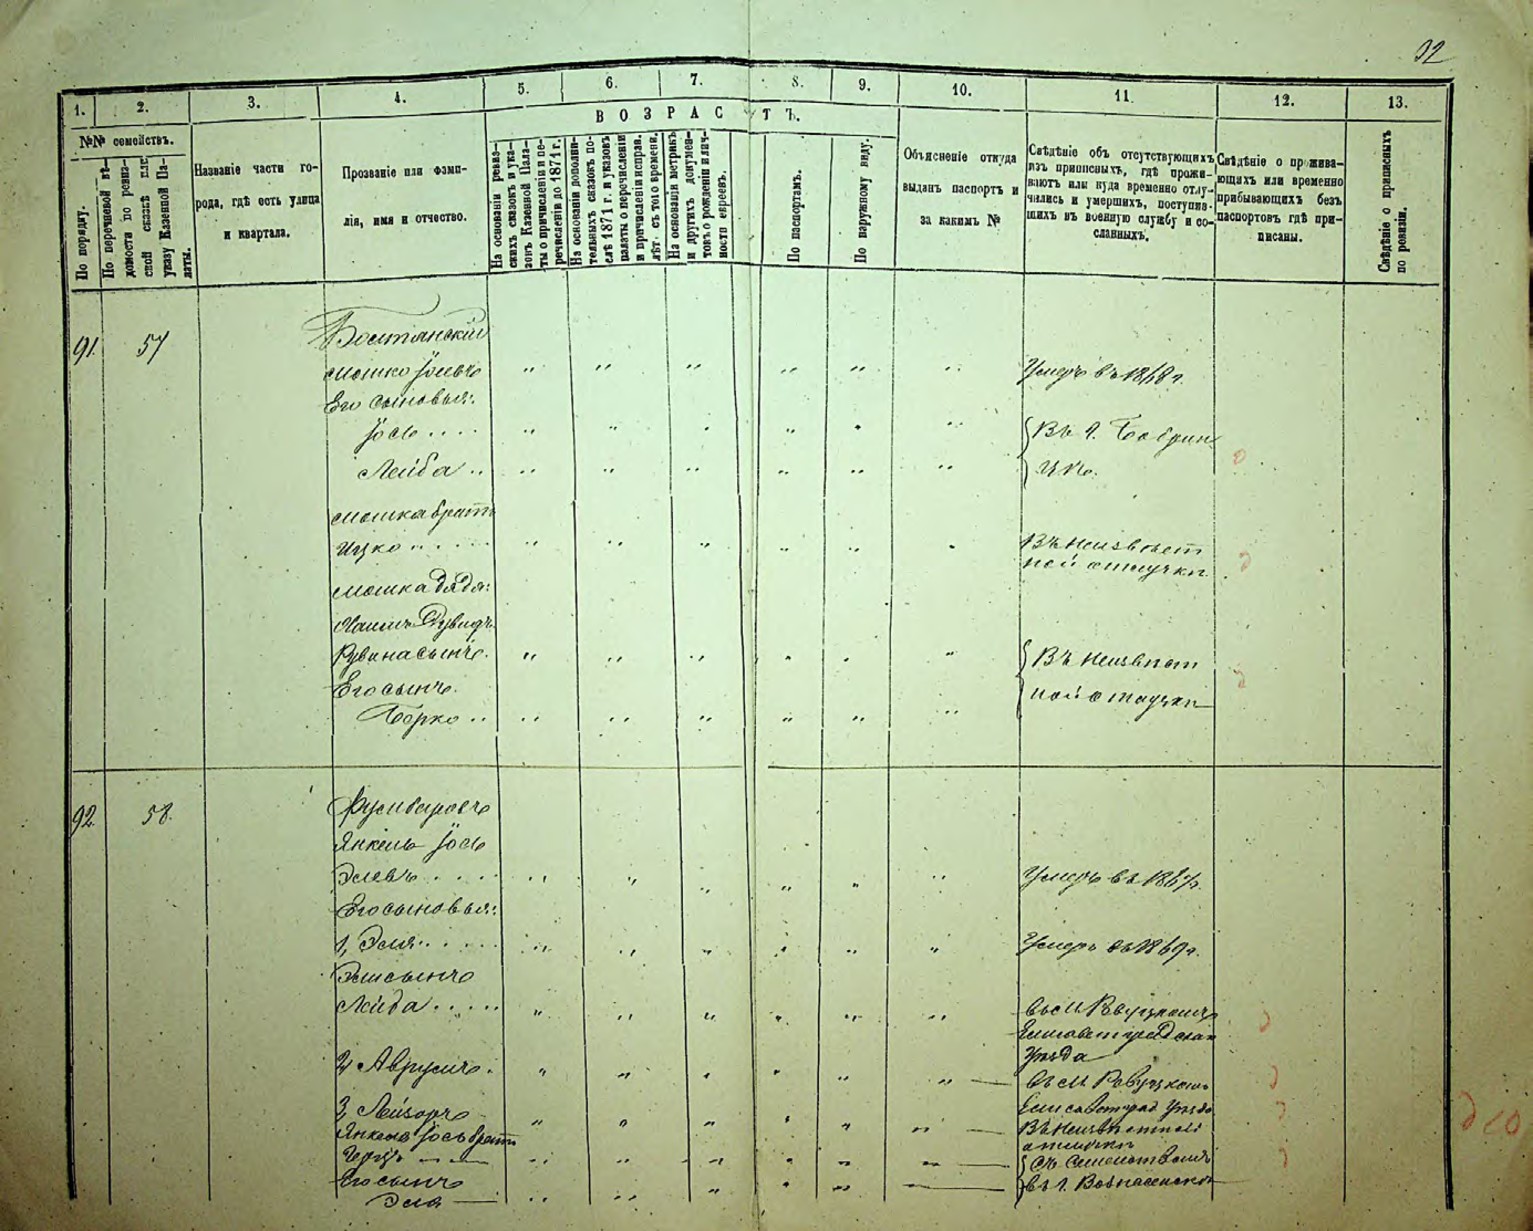 32
1. 2. 3. 4. 5. 6. 7. 8. 9. 10. 11. 12. 13.
ВОЗРАСТЪ.
№№ семействъ.
По порядку.
По перечневой вѣ-
домости по ревиз-
ской сказкѣ или
указу Казенной Па-
латы.
Названіе части го-
рода, гдѣ есть улица
и квартала.
Прозваніе или фами-
лія, имя и отчество.
На основаніи ревиз-
скихъ сказокъ и ука-
зовъ Казенной Пала-
ты о причисленіи и пе-
речисленіи до 1871 г.
На основаніи дополни-
тельныхъ сказокъ по-
слѣ 1871 г. и указовъ
палаты о перечисленіи
и причисленіи исправ.
лѣт. съ того времени.
На основаніи метрикъ
и другихъ докумен-
товъ о рожденіи и лич-
ности евреевъ.
По паспортамъ.
По наружному виду.
Объясненіе откуда
выданъ паспортъ и
за какимъ №
Свѣдѣніе объ отсутствующихъ
изъ приписныхъ, гдѣ прожи-
ваютъ или куда временно отлу-
чились и умершихъ, поступив-
шихъ въ военную службу и со-
сланныхъ.
Свѣдѣніе о прожива-
ющихъ или временно
прибывающихъ безъ
паспортовъ гдѣ при-
писаны.
Свѣдѣніе о приписныхъ
по ревизіи.
91. 57
Мошко Іосевъ Умеръ въ 1868 г.
Его сыновья:
Іось Въ г. Бобрин
Лейба цѣ.
Мошка братъ
Ицко Въ неизвѣст
ной отлучки.
Мошка дядя:
Хаимъ Дувидъ
Рувина сынъ Въ неизвѣст
Его сынъ
ной отлучки
Берко
92. 58.
Янкель Іось
Элевъ Умеръ въ 1867 г.
Его сыновья:
1, Эля Умеръ въ 1869 г.
Эли сынъ
Лейба
Елисаветградскаго
Уѣзда
2, Аврумъ
3, Лейзоръ Елисаветград Уѣзда
Янкеля Іося братъ Въ неизвѣстной
отлучки
Герцъ Съ семействомъ
Его сынъ въ г. Вознесенскѣ
Эля